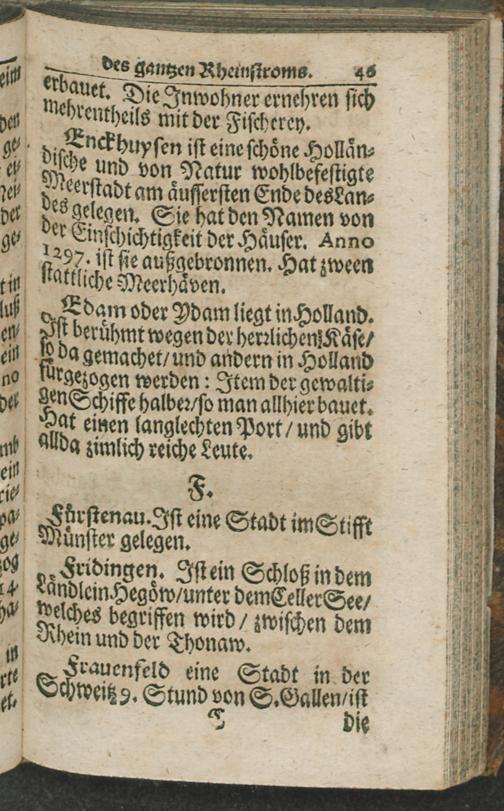 des gantzen Rheinstroms. 46
erbauet. Die Inwohner ernehren sich
mehrentheils mit der Fischerey.
Enckhuysen ist eine schöne Hollän⸗
dische und von Natur wohlbefestigte
Meerstadt am äussersten Ende des Lan⸗
des gelegen. Sie hat den Namen von
der Einschichtigkeit der Häuser. Anno
1297. ist sie außgebronnen. Hat zween
stattliche Meerhäven.
Edam oder Ydam liegt in Holland.
Ist berühmt wegen der herzlichen Käse/
so da gemachet/ und andern in Holland
fürgezogen werden: Item der gewalti⸗
gen Schiffe halber/ so man allhier bauet.
Hat einen langlechten Port/ und gibt
allda zimlich reiche Leute.
F.
Fürstenau. Ist eine Stadt im Stifft
Münster gelegen.
Fridingen. Ist ein Schloß in dem
Ländlein Hegöw/ unter dem Celler See/
welches begriffen wird/ zwischen dem
Rhein und der Thonaw.
Frauenfeld eine Stadt in der
Schweitz 9. Stund von S. Gallen/ ist
die